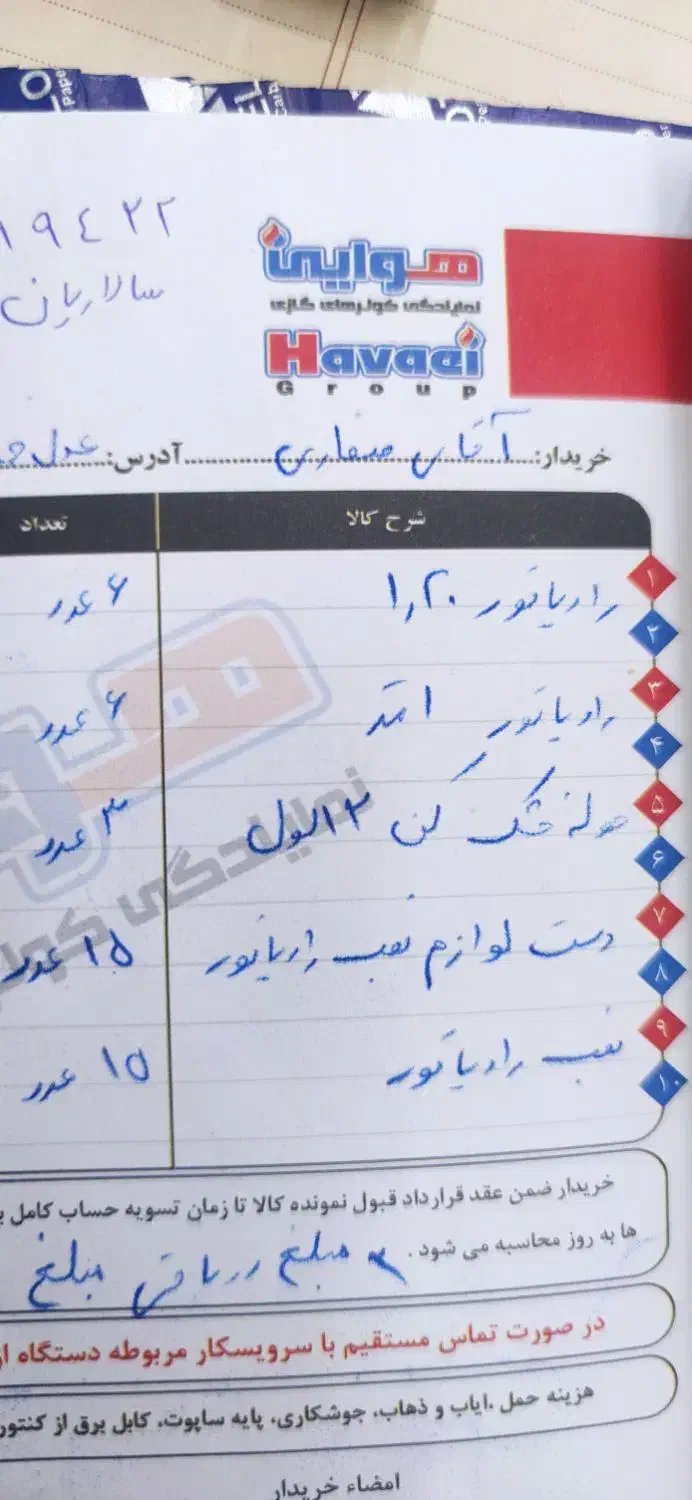 ۱۹۴۲۲
سالاریان
هوایی
نمایندگی کولرهای گازی
Havaei
Group
خریدار: آقای صفاری آدرس: عدل
شرح کالا تعداد
۱ رادیاتور ۱,۲۰ ۶ عدد
۲
۳ رادیاتور ۱ متر ۶ عدد
۴
۵ حوله خشک کن ۱۲ لول ۳ عدد
۶
۷ دست لوازم نصب رادیاتور ۱۵ عدد
۸
۹ نصب رادیاتور ۱۵ عدد
۱۰
نمایندگی
خریدار ضمن عقد قرارداد قبول نمونده کالا تا زمان تسویه حساب کامل
ها به روز محاسبه می شود. مبلغ دریافتی مبلغ
در صورت تماس مستقیم با سرویسکار مربوطه دستگاه
هزینه حمل ،ایاب و ذهاب، جوشکاری، پایه ساپوت، کابل برق از کنتور
امضاء خریدار